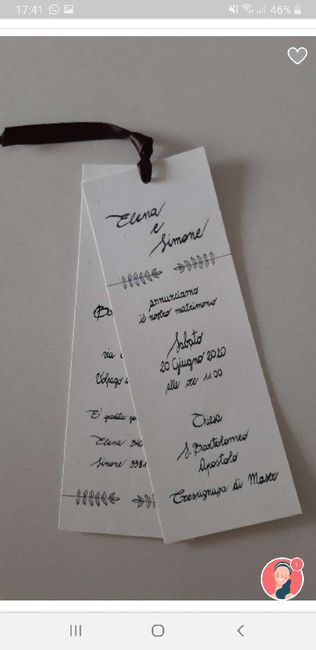 17:41
46%
Elena
e
Simone
annunciamo
il nostro matrimonio
Sabato
20 Giugno 2020
alle ore 11:00
Chiesa
S. Bartolomeo
Apostolo
di Maser
Bo
via
Volpago
E' gradita
Elena
Simone
1